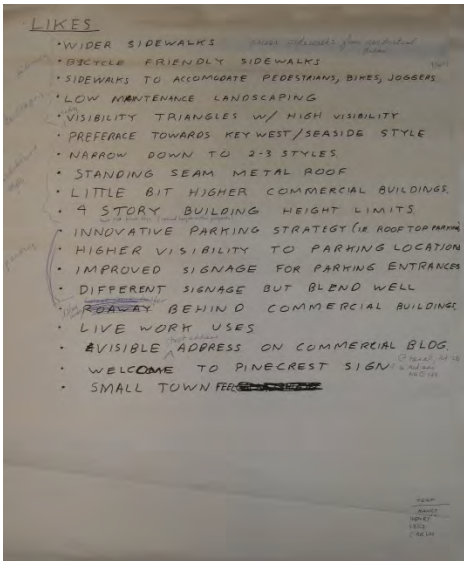 LIKES
• WIDER SIDEWALKS
• BICYCLE FRIENDLY SIDEWALKS
• SIDEWALKS TO ACCOMODATE PEDESTRIANS, BIKES, JOGGERS
• LOW MAINTENANCE LANDSCAPING
• VISIBILITY TRIANGLES W/ HIGH VISIBILITY
• PREFERACE TOWARDS KEY WEST/SEASIDE STYLE
• NARROW DOWN TO 2-3 STYLES.
• STANDING SEAM METAL ROOF
• LITTLE BIT HIGHER COMMERCIAL BUILDINGS.
• 4 STORY BUILDING HEIGHT LIMITS.
• INNOVATIVE PARKING STRATEGY (IE ROOFTOP PARKING
• HIGHER VISIBILITY TO PARKING LOCATION
• IMPROVED SIGNAGE FOR PARKING ENTRANCES
• DIFFERENT SIGNAGE BUT BLEND WELL
• BEHIND COMMERCIAL BUILDINGS.
• LIVE WORK USES
• VISIBLE ADDRESS ON COMMERCIAL BLDG.
• WELCOME TO PINECREST SIGN
• SMALL TOWN FEEL